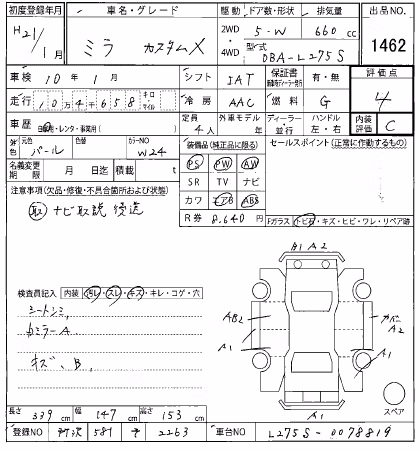 初度登録年月 車名・グレード 駆動 ドア数・形状 排気量 出品NO.
H21/1月 ミラ カスタムX 2WD 4WD 5-W 660cc 1462
型式 DBA-L275S
車検 10年1月 シフト IAT 保証書 有・無 評価点 4
走行 10万4千658 キロ マイル 冷房 AAC 燃料 G
車歴 自家用・レンタ・事業用( ) 定員 4人 外車モデル 年 ディーラー・並行 ハンドル 左・右 内装評価 C
外色 元色 パール 色替 カラーNO W24 装備品(純正品に限る) セールスポイント(正常に作動するもの)
名義変更期限 月 日迄 積載量 t PS PW AW
SR TV ナビ
注意事項(欠品・修復・不具合箇所および状態) カワ エアB ABS
取 ナビ取説 後送 R券 8,640円
Fガラス トビ石・キズ・ヒビ・ワレ・リペア跡
B1 A2
検査員記入 内装 汚レ・スレ・キズ・キレ・コゲ・穴
シートシミ
AB2 カバー A2
カミラーA
A1 A1
キズ、B
スペア
A1
長さ 339cm 幅 147cm 高さ 153cm
登録NO 581 2263 車台NO L275S-0078819